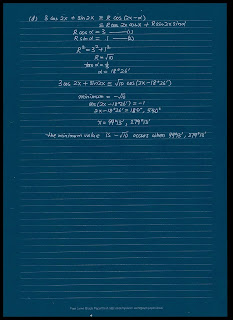 (d) 3 cos 2x + sin 2x ≡ R cos (2x-α)
≡ R cos 2x cos α + R sin 2x sin α
R cos α = 3 —— (1)
R sin α = 1 —— (2)
R² = 3² + 1²
R = √10
tan α = 1/3
α = 18°26'
3 cos 2x + sin 2x ≡ √10 cos (2x-18°26')
minimum = -√10
cos (2x-18°26') = -1
2x-18°26' = 180°, 540°
x = 99°13', 279°13'
the minimum value is -√10 occurs when 99°13', 279°13'